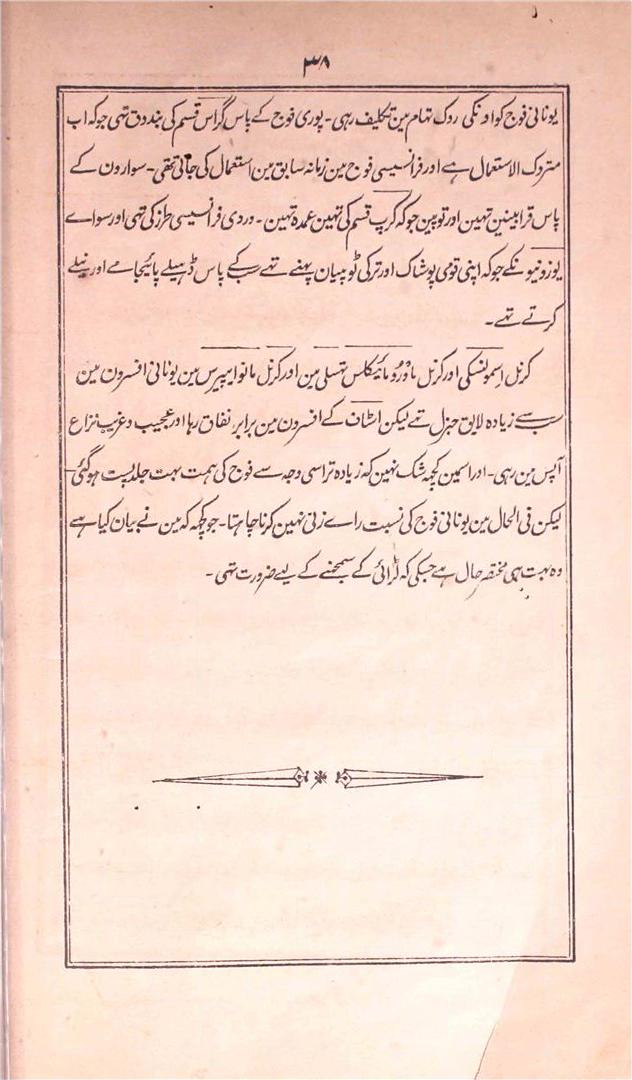 ۳۸
یونانی فوج کو اونکی روک تمام مین تکلیف رہی۔ پوری فوج کے پاس گراس قسم کی بندوق تہی جو کہ اب
متروک الاستعمال ہے اور فرانسیسی فوج مین زمانہ سابق مین استعمال کی جاتی تھی۔ سوارون کے
پاس قرابینین تہین اور توپین جو کہ کرپ قسم کی تہین عمدہ تہین۔ وردی فرانسیسی طرز کی تہی اور سواے
یوزونیو نکے جو کہ اپنی قومی پوشاک اور ترکی ٹوپیان پہنے تہے سب کے پاس ڈہیلے پائیجامے اور نیلے
کرتے تہے۔
کرنل اسمولنسکی اور کرنل ماورومائیکلس تہسلی مین اور کرنل مانوا یپیرس مین یونانی افسرون مین
سب سے زیادہ لایق جنرل تہے لیکن اسٹاف کے افسرون مین برابر نفاق رہا اور عجیب و غریب نزاع
آپس مین رہی۔ اور اسمین کچہہ شک نہین کہ زیادہ تر اسی وجہ سے فوج کی ہمت بہت جلد پست ہو گئی
لیکن فی الحال مین یونانی فوج کی نسبت راے زنی نہین کرنا چاہتا۔ جو کچہہ کہ مین نے بیان کیا ہے
وہ بہت ہی مختصر حال ہے جسکی کہ لڑائی کے سمجہنے کے لیے ضرورت تہی۔